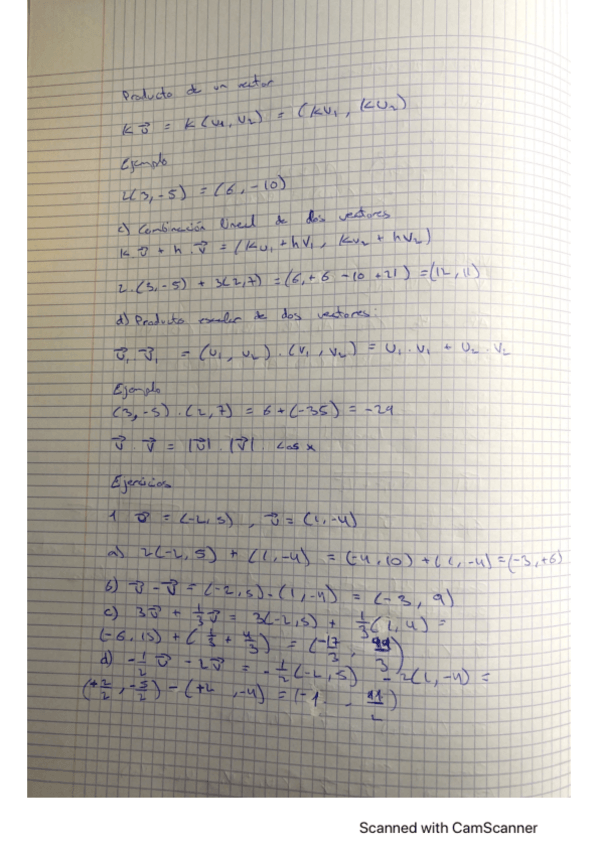 Producto de un vector
k u⃗ = k (u₁, u₂) = (ku₁, ku₂)
Ejemplo
2(3, -5) = (6, -10)
c) Combinación lineal de dos vectores
k u⃗ + h . v⃗ = (ku₁ + hv₁, ku₂ + hv₂)
2.(3, -5) + 3(2, 7) = (6, +6 -10 +21) = (12, 11)
d) Producto escalar de dos vectores:
u⃗₁ v⃗₁ = (u₁, u₂) . (v₁, v₂) = u₁ . v₁ + u₂ . v₂
Ejemplo
(3, -5) . (2, 7) = 6 + (-35) = -29
u⃗ . v⃗ = |u⃗| . |v⃗| . cos x
Ejercicios
1 u⃗ = (-2, 5) , v⃗ = (1, -4)
a) 2(-2, 5) + (1, -4) = (-4, 10) + (1, -4) = (-3, +6)
b) u⃗ - v⃗ = (-2, 5) - (1, -4) = (-3, 9)
c) 3u⃗ + 1/3 v⃗ = 3(-2, 5) + 1/3 (1, 4) =
(-6, 15) + (1/3 + 4/3) = (-17/3, /3)
d) -1/2 u⃗ - 2v⃗ = -1/2 (-2, 5) - 2(1, -4) =
(+2/2, -5/2) - (+2, -4) = (-1, 11/2)
Scanned with CamScanner